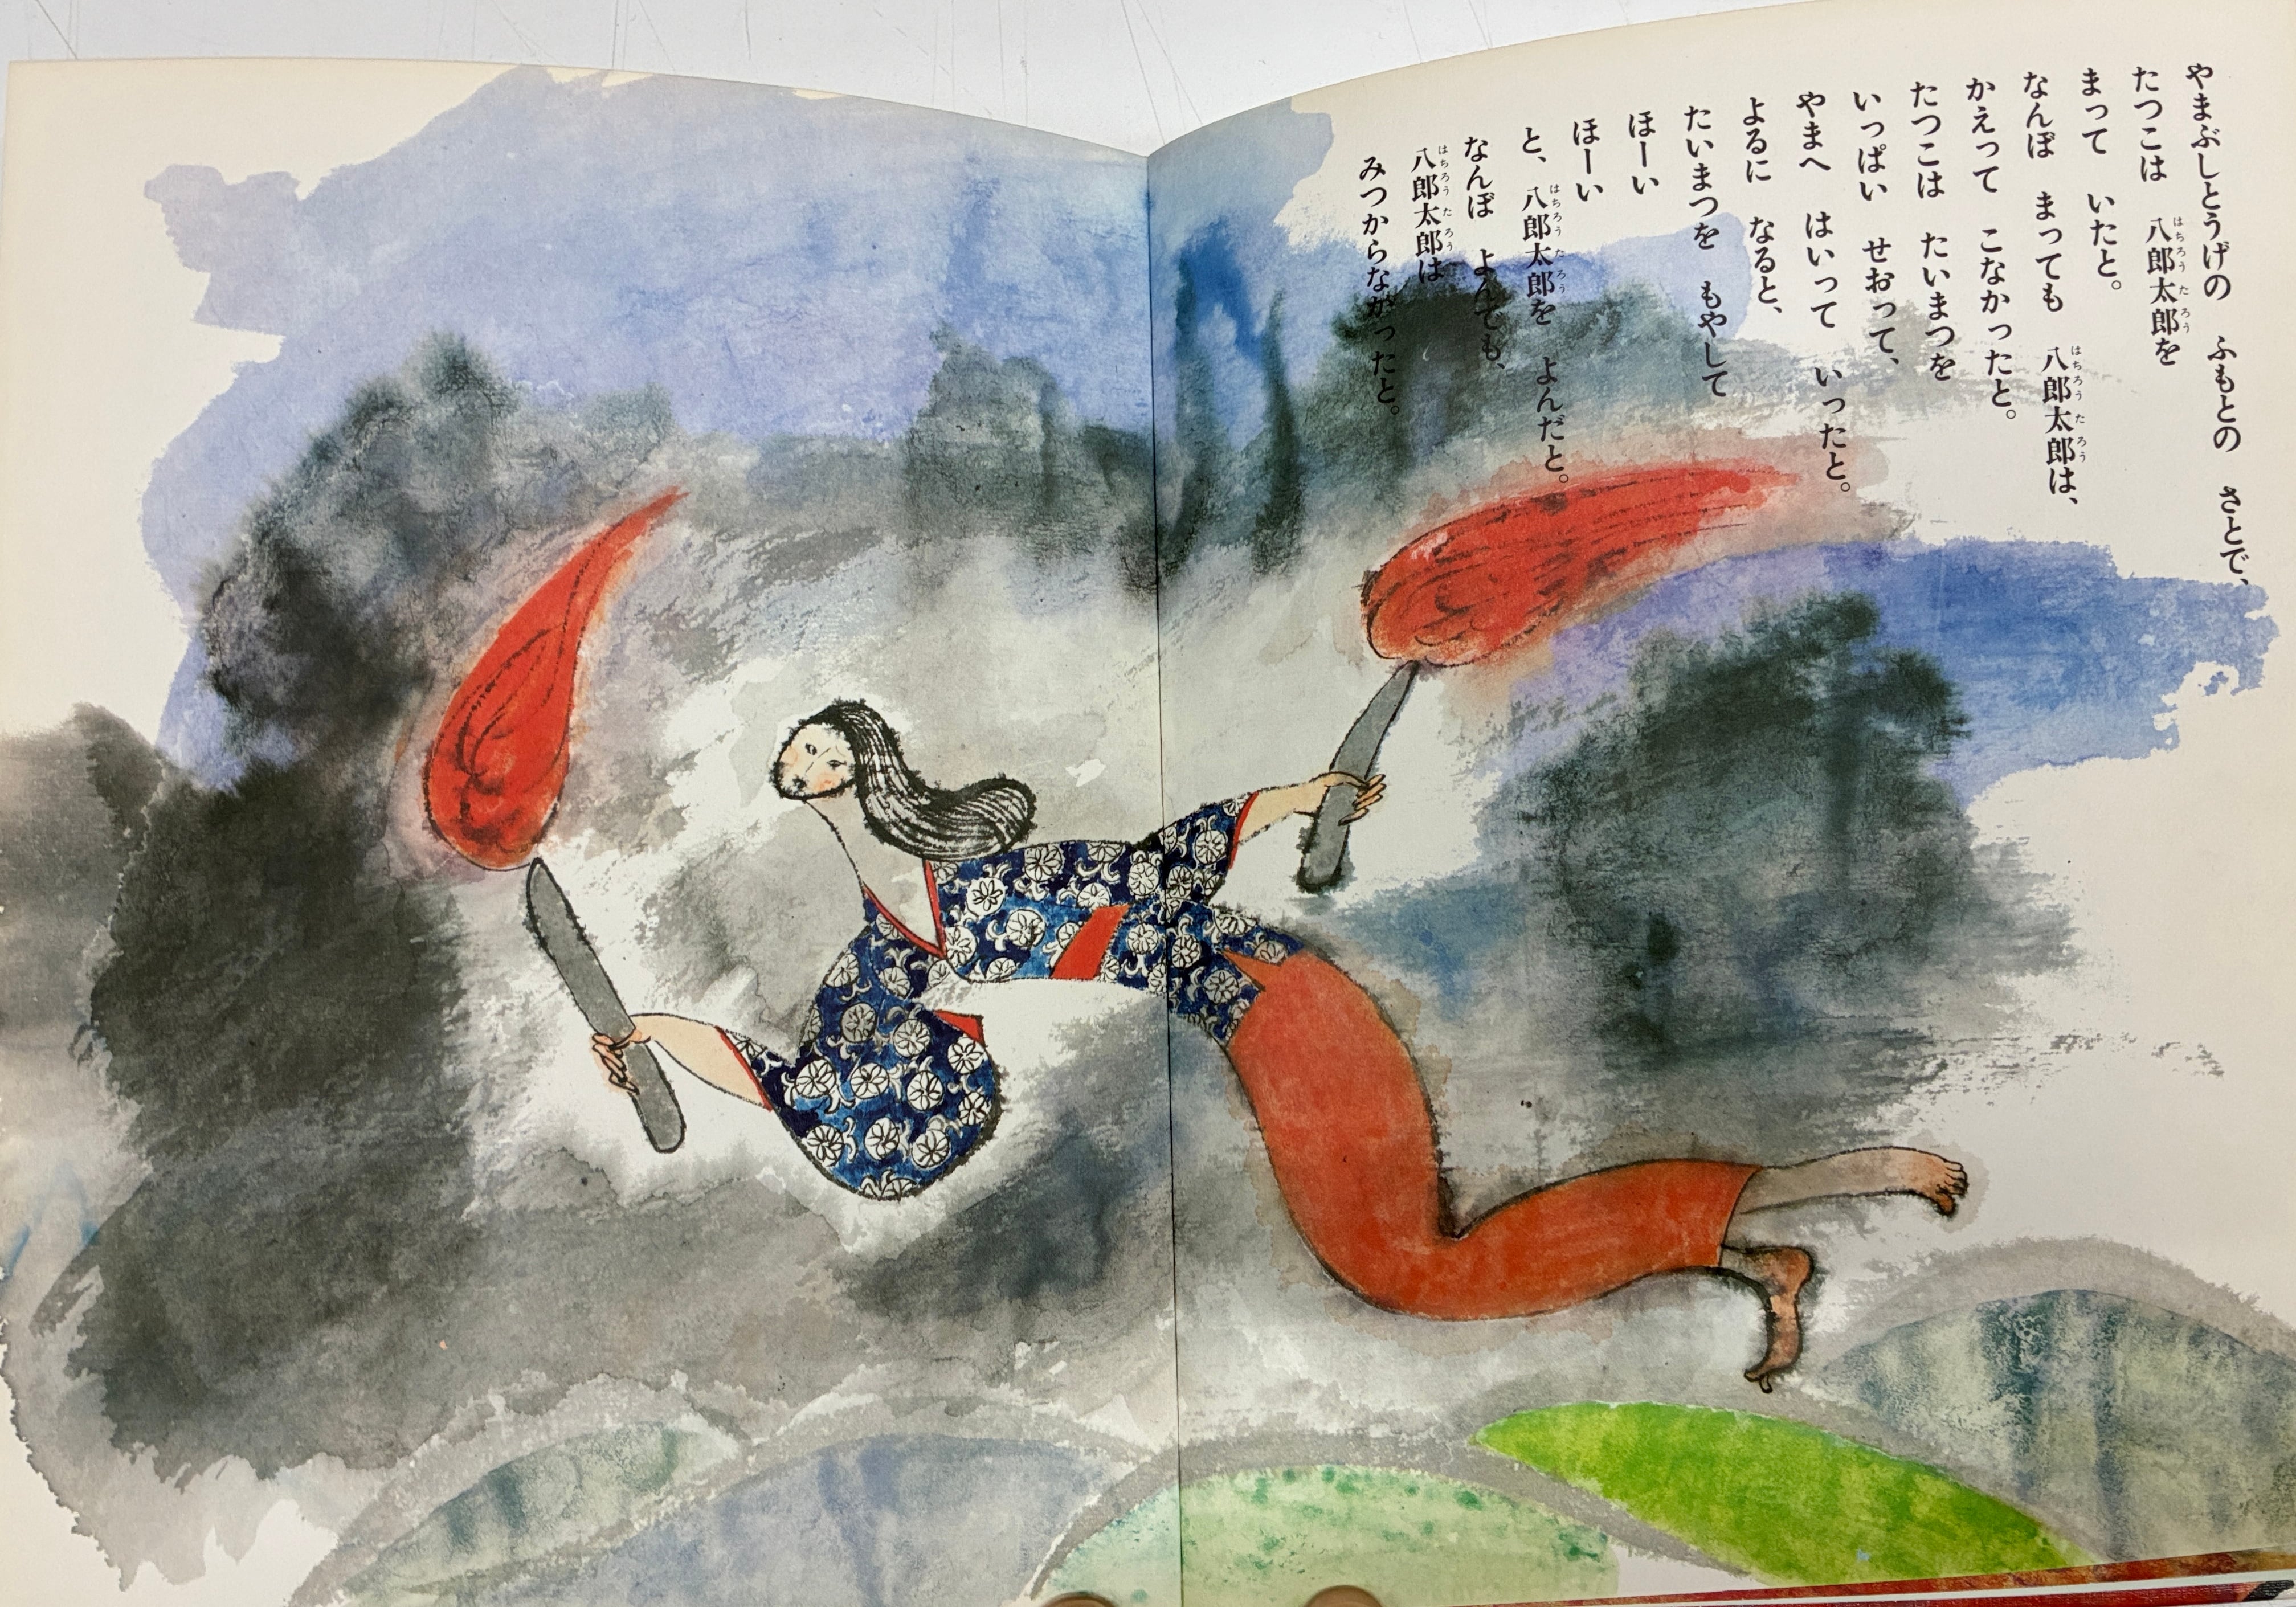 やまぶしとうげの　ふもとの　さとで、
たつこは　八郎太郎を
まって　いたと。
なんぼ　まっても　八郎太郎は、
かえって　こなかったと。
たつこは　たいまつを
いっぱい　せおって、
やまへ　はいって　いったと。
よるに　なると、
たいまつを　もやして
ほーい
ほーい
と、八郎太郎を　よんだと。
なんぼ　よんでも、
八郎太郎は
みつからながったと。